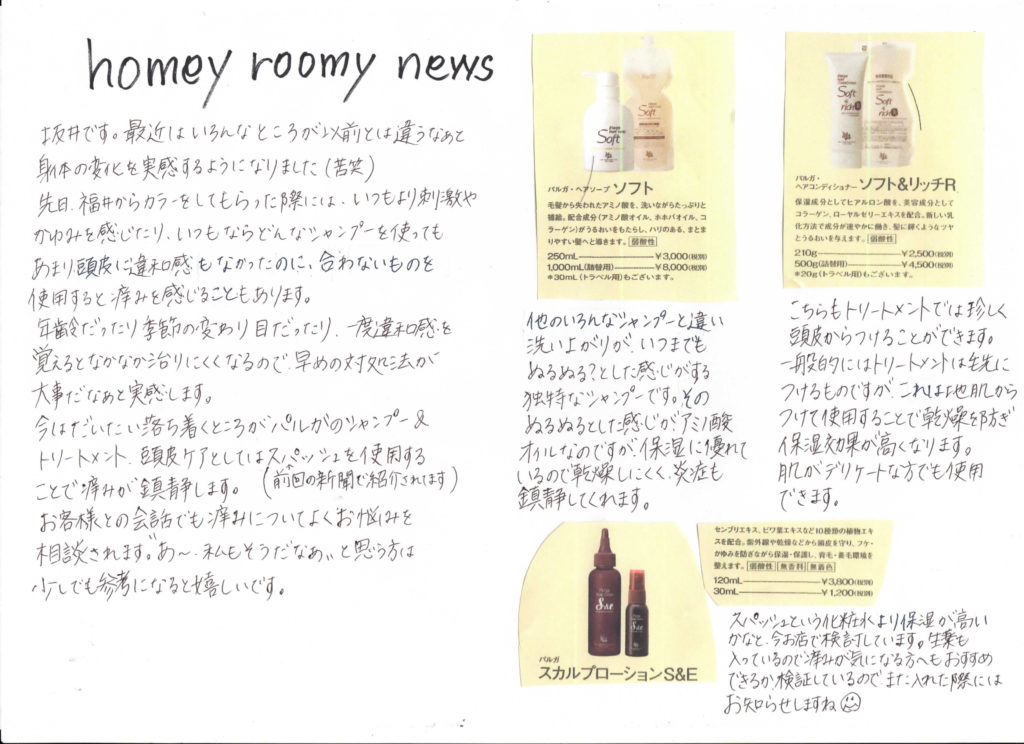 homey roomy news
坂井です。最近はいろんなところが以前とは違うなぁと
身体の変化を実感するようになりました(苦笑)
先日、福井からカラーをしてもらった際には、いつもより刺激や
かゆみを感じたり、いつもならどんなシャンプーを使っても
あまり頭皮に違和感もなかったのに、合わないものを
使用すると痒みを感じることもあります。
年齢だったり季節の変わり目だったり、一度違和感を
覚えるとなかなか治りにくくなるので、早めの対処法が
大事だなぁと実感します。
今はだいたい落ち着くところがパルガのシャンプー&
トリートメント、頭皮ケアとしてはスパッシュを使用する
ことで痒みが鎮静します。(前回の新聞で紹介されてます)
お客様との会話でも痒みについてよくお悩みを
相談されます。"あ〜、私もそうだなあ"と思う方は
少しでも参考になると嬉しいです。
Soft
パルガ・ヘアソープ ソフト
毛髪から失われたアミノ酸を、洗いながらたっぷりと
補給。配合成分(アミノ酸オイル、ホホバオイル、コ
ラーゲン)がうるおいをもたらし、ハリのある、まとま
りやすい髪へと導きます。弱酸性
250mL ¥3,000(税別)
1,000mL(詰替用) ¥8,000(税別)
*30mL(トラベル用)もございます。
他のいろんなシャンプーと違い
洗い上がりが、いつまでも
ぬるぬる?とした感じがする
独特なシャンプーです。その
ぬるぬるとした感じがアミノ酸
オイルなのですが、保湿に優れて
いるので乾燥しにくく、炎症も
鎮静してくれます。
Soft & rich
パルガ・
ヘアコンディショナー ソフト&リッチR
保湿成分としてヒアルロン酸を、美容成分として
コラーゲン、ローヤルゼリーエキスを配合。新しい乳
化方法で成分が速やかに働き、髪に輝くようなツヤ
とうるおいを与えます。弱酸性
210g ¥2,500(税別)
500g(詰替用) ¥4,500(税別)
*20g(トラベル用)もございます。
こちらもトリートメントでは珍しく
頭皮からつけることができます。
一般的にはトリートメントは毛先に
つけるものですが、これは地肌から
つけて使用することで乾燥を防ぎ
保湿効果が高くなります。
肌がデリケートな方でも使用
できます。
S&E
パルガ
スカルプローションS&E
センブリエキス、ビワ葉エキスなど10種類の植物エキ
スを配合。紫外線や乾燥などから頭皮を守り、フケ・
かゆみを防ぎながら保湿・保護し、育毛・養毛環境を
整えます。弱酸性 無香料 無着色
120mL ¥3,800(税別)
30mL ¥1,200(税別)
スパッシュという化粧水より保湿が高い
かなと、今お店で検討しています。生薬も
入っているので痒みが気になる方へもおすすめ
できるか、検証しているのでまた入れた際には
お知らせしますね